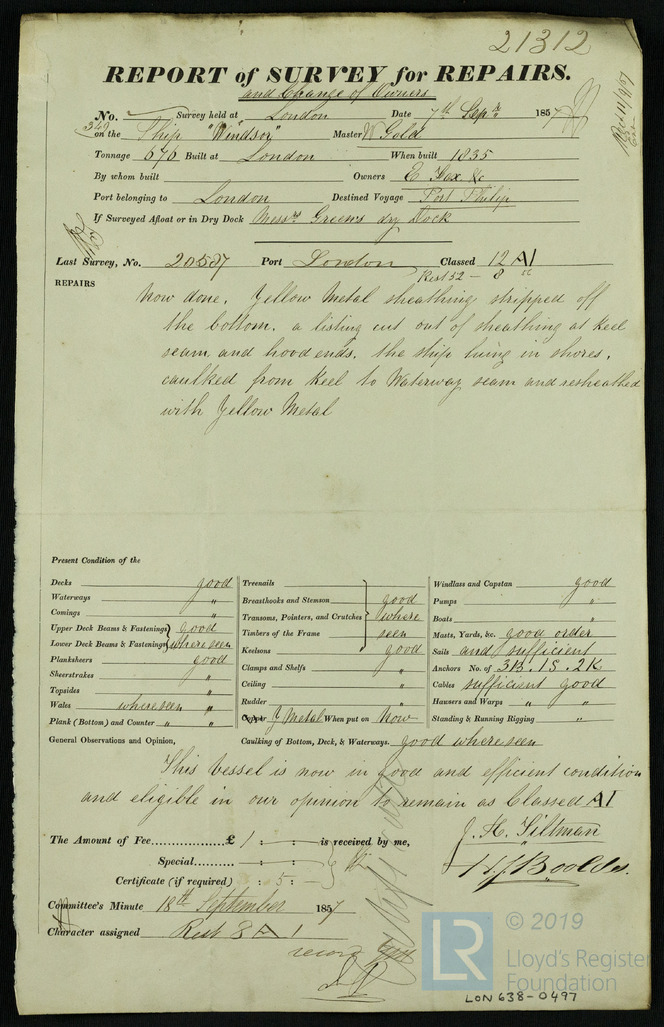 21312
REPORT of SURVEY for REPAIRS.
and Change of Owners
No. 340 Survey held at London Date 7th Sepr 1857
on the Ship "Windsor" Master W Gold
Tonnage 676 Built at London When built 1835
By whom built Owners E Fox &c
Port belonging to London Destined Voyage Port Philip
If Surveyed Afloat or in Dry Dock Messrs Greens dry Dock
Last Survey, No. 20587 Port London Classed 12 A1
Rest 52 - 8
REPAIRS
Now done, Yellow Metal sheathing stripped off
the bottom, a listing cut out of sheathing at keel
seam and hood ends, the ship being in shores,
caulked from keel to Waterway seam and resheathed
with Yellow Metal
Present Condition of the
Decks good
Waterways "
Comings "
Upper Deck Beams & Fastenings good
Lower Deck Beams & Fastenings where seen
Planksheers good
Sheerstrakes "
Topsides "
Wales where seen "
Plank (Bottom) and Counter " "
Treenails
Breasthooks and Stemson good
Transoms, Pointers, and Crutches where
Timbers of the Frame seen
Keelsons good
Clamps and Shelfs "
Ceiling "
Rudder "
Copper Y Metal When put on Now
Windlass and Capstan good
Pumps "
Boats "
Masts, Yards, &c. good order
Sails and sufficient
Anchors No. of 3B. 1S. 2K
Cables sufficient good
Hawsers and Warps " "
Standing & Running Rigging "
General Observations and Opinion, Caulking of Bottom, Deck, & Waterways. good where seen
This vessel is now in good and efficient condition
and eligible in our opinion to remain as Classed A1
The Amount of Fee £ 1 : - : - is received by me,
Special : - :
Certificate (if required) : 5 : -
J. H. Tiltman
H J Boolds.
Committee's Minute 18th September 1857
Character assigned Rest 8 A 1
record
© 2019
LR
Lloyd's Register
Foundation
LON 638-0497